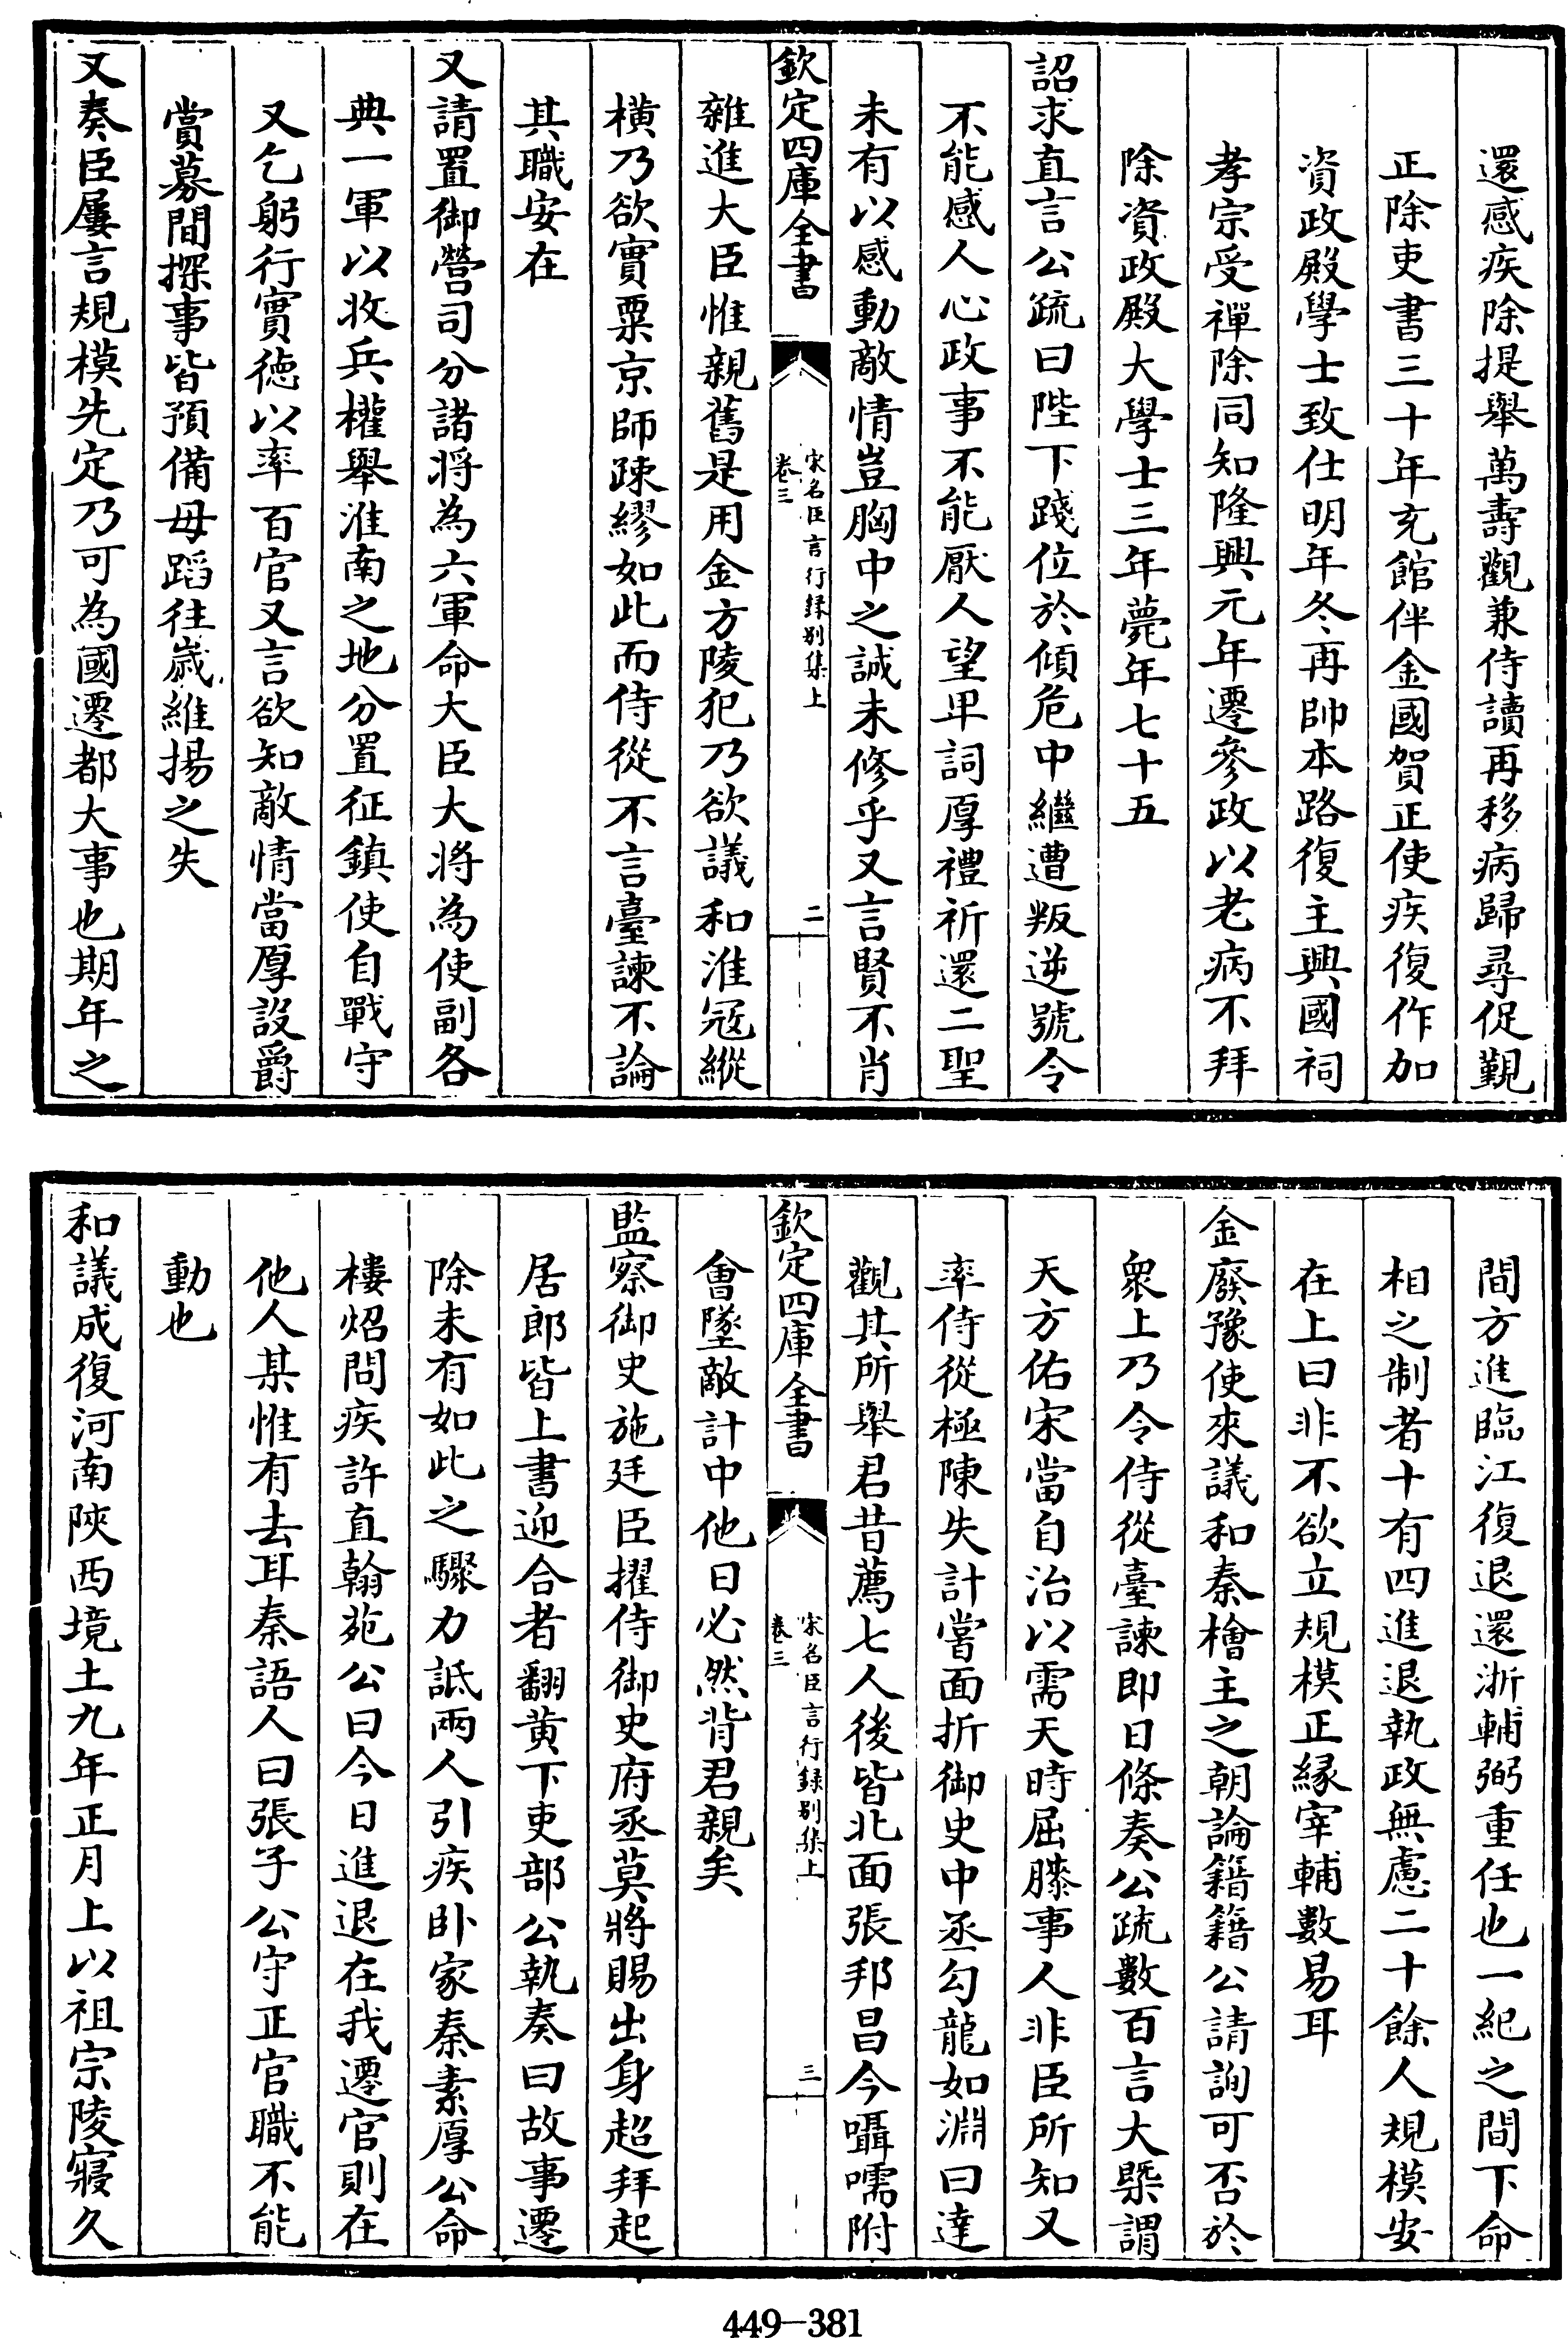 還感疾除提舉萬壽觀兼侍讀再移病歸尋促覲
正除吏書三十年充館伴金國賀正使疾復作加
資政殿學士致仕明年冬再帥本路復主興國祠
孝宗受禪除同知隆興元年遷參政以老病不拜
除資政殿大學士三年薨年七十五
詔求直言公疏曰陛下踐位於傾危中繼遭叛逆號令
不能感人心政事不能厭人望卑詞厚禮祈還二聖
未有以感動敵情豈胸中之誠未修乎又言賢不肖
欽定四庫全書
宋名臣言行録别集上
卷三
二
雜進大臣惟親舊是用金方陵犯乃欲議和淮冦縱
橫乃欲實粟京師疎繆如此而侍從不言臺諫不論
其職安在
又請置御營司分諸將為六軍命大臣大將為使副各
典一軍以收兵權舉淮南之地分置征鎮使自戰守
又乞躬行實德以率百官又言欲知敵情當厚設爵
賞募間探事皆預備毋蹈往歲維揚之失
又奏臣屢言規模先定乃可為國遷都大事也期年之
間方進臨江復退還浙輔弼重任也一紀之間下命
相之制者十有四進退執政無慮二十餘人規模安
在上曰非不欲立規模正緣宰輔數易耳
金廢豫使來議和秦檜主之朝論籍籍公請詢可否於
衆上乃令侍從臺諫即日條奏公疏數百言大槩謂
天方佑宋當自治以需天時屈膝事人非臣所知又
率侍從極陳失計嘗面折御史中丞勾龍如淵曰達
觀其所舉君昔薦七人後皆北面張邦昌今囁嚅附
欽定四庫全書
宋名臣言行録别集上
卷三
三
會墜敵計中他日必然背君親矣
監察御史施廷臣擢侍御史府丞莫將賜出身超拜起
居郎皆上書迎合者翻黄下吏部公執奏曰故事遷
除未有如此之驟力詆兩人引疾卧家秦素厚公命
樓炤問疾許直翰苑公曰今日進退在我遷官則在
他人某惟有去耳秦語人曰張子公守正官職不能
動也
和議成復河南陜西境土九年正月上以祖宗陵寢久
449-381